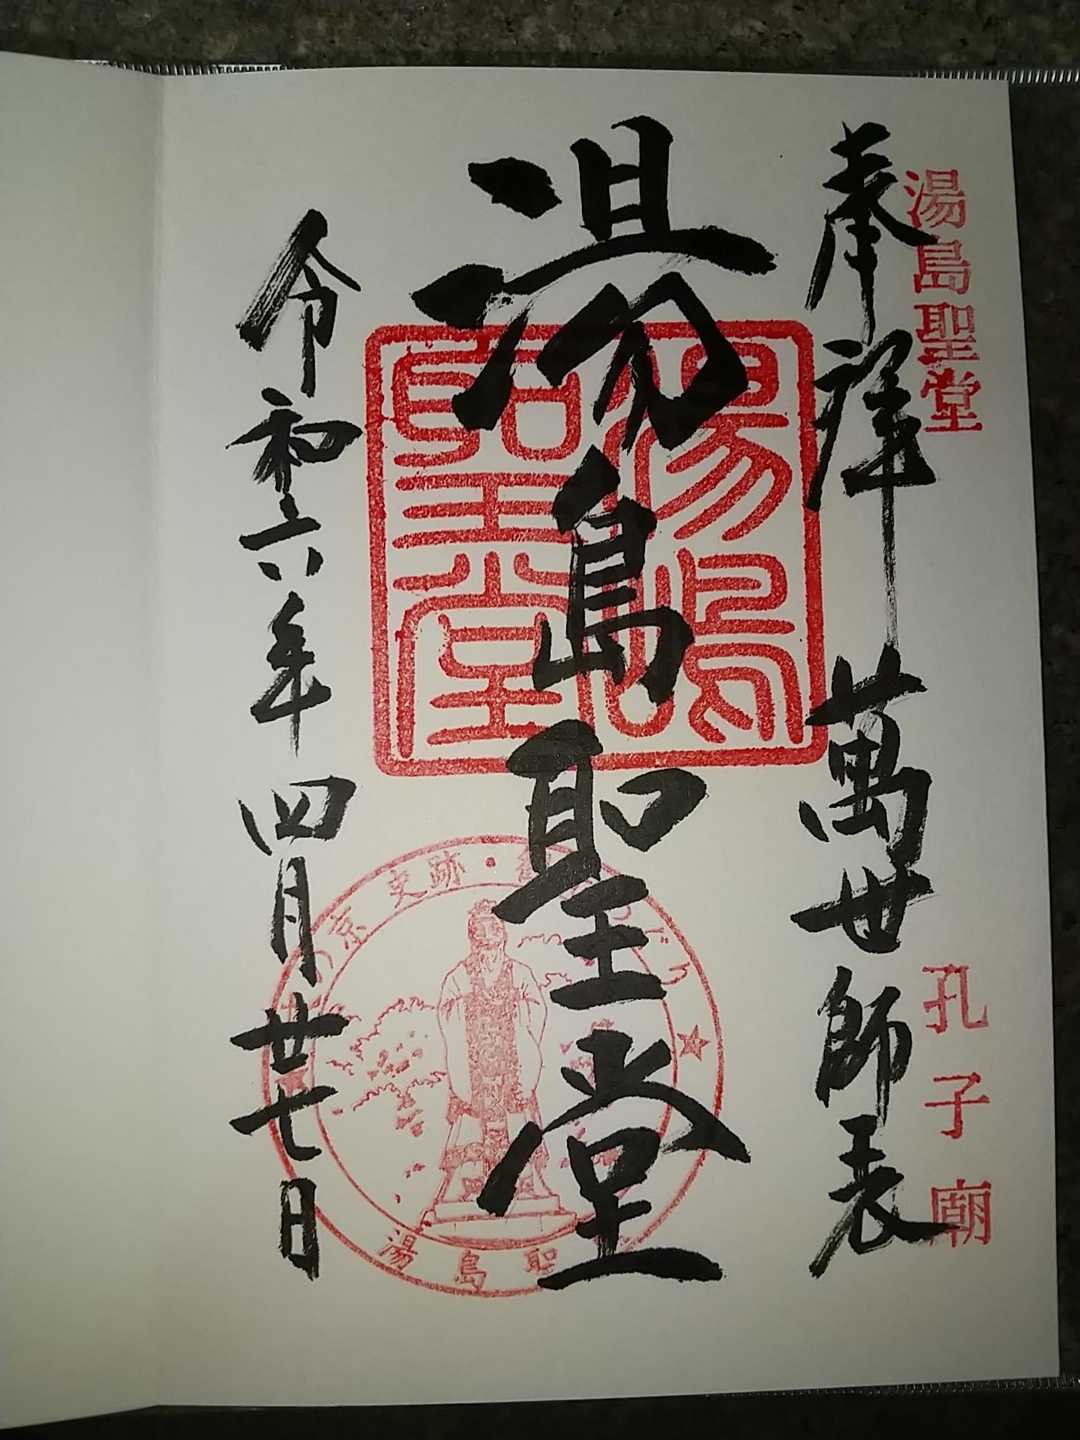 湯島聖堂
孔子廟
奉拝 萬世師表
湯島聖堂
湯嶋聖堂
京史跡・
湯島聖
令和六年 四月廿七日